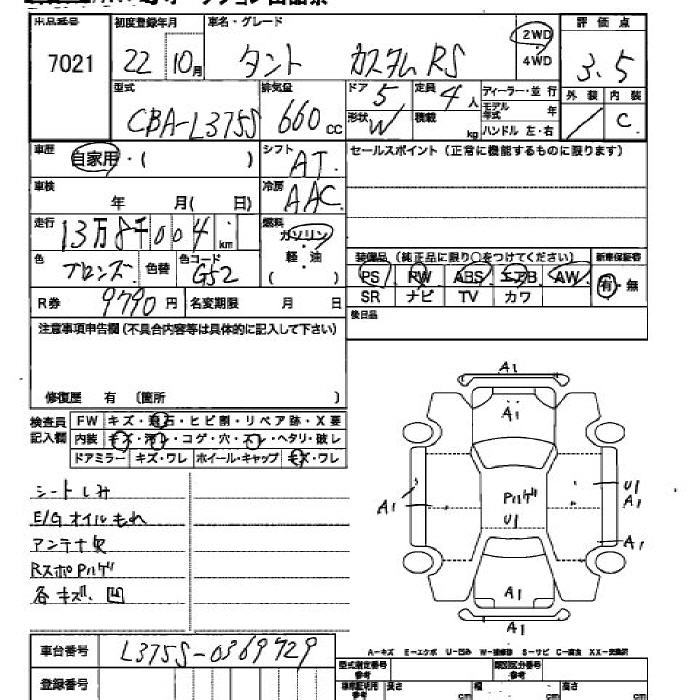 出品番号 初度登録年月 車名・グレード 2WD・4WD 評価点
7021 22 10月 タント カスタムRS 3.5
型式 排気量 ドア 5 定員 4人 ディーラー・並行 外装 内装
CBA-L375S 660cc 形状 W 積載 kg モデル年式 年 ハンドル 左・右 / C
車歴 自家用・( ) シフト AT セールスポイント (正常に機能するものに限ります)
車検 年 月( 日) 冷房 AAC
走行 13万8千004km 燃料 ガソリン・軽・油 ( )
色 ブロンズ 色替 色コード G52
装備品 (純正品に限り○をつけてください) 新車保証書
PS PW ABS エアB AW 有・無
SR ナビ TV カワ
R券 9790円 名変期限 月 日
後日品
注意事項申告欄(不具合内容等は具体的に記入して下さい)
修復歴 有 (箇所 )
検査員記入欄
FW キズ・飛石・ヒビ割・リペア跡・X要
内装 キズ・汚レ・コゲ・穴・スレ・ヘタリ・破レ
ドアミラー キズ・ワレ ホイール・キャップ キズ・ワレ
シートしみ
E/Gオイルもれ
アンテナ欠
RスポPハゲ
各キズ、凹
A1
A1
Pハゲ
U1
A1
U1
A1
A1
A1
A1
A-キズ E-エクボ U-凹み W-補修跡 S-サビ C-腐食 XX-交換済
車台番号 L375S-0369729
登録番号
型式指定番号 参考 類別区分番号 参考
長さ cm 幅 cm 高さ cm